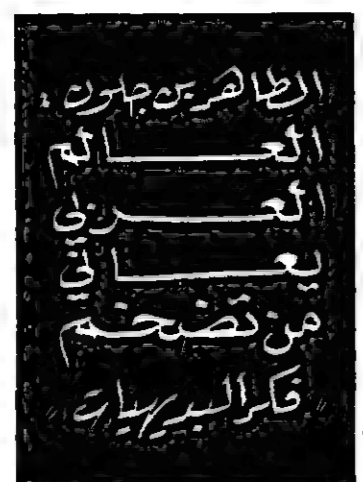 الطاهر بن جلون :
العالم
العربي
يعاني
من تضخم
فكر البديهيات